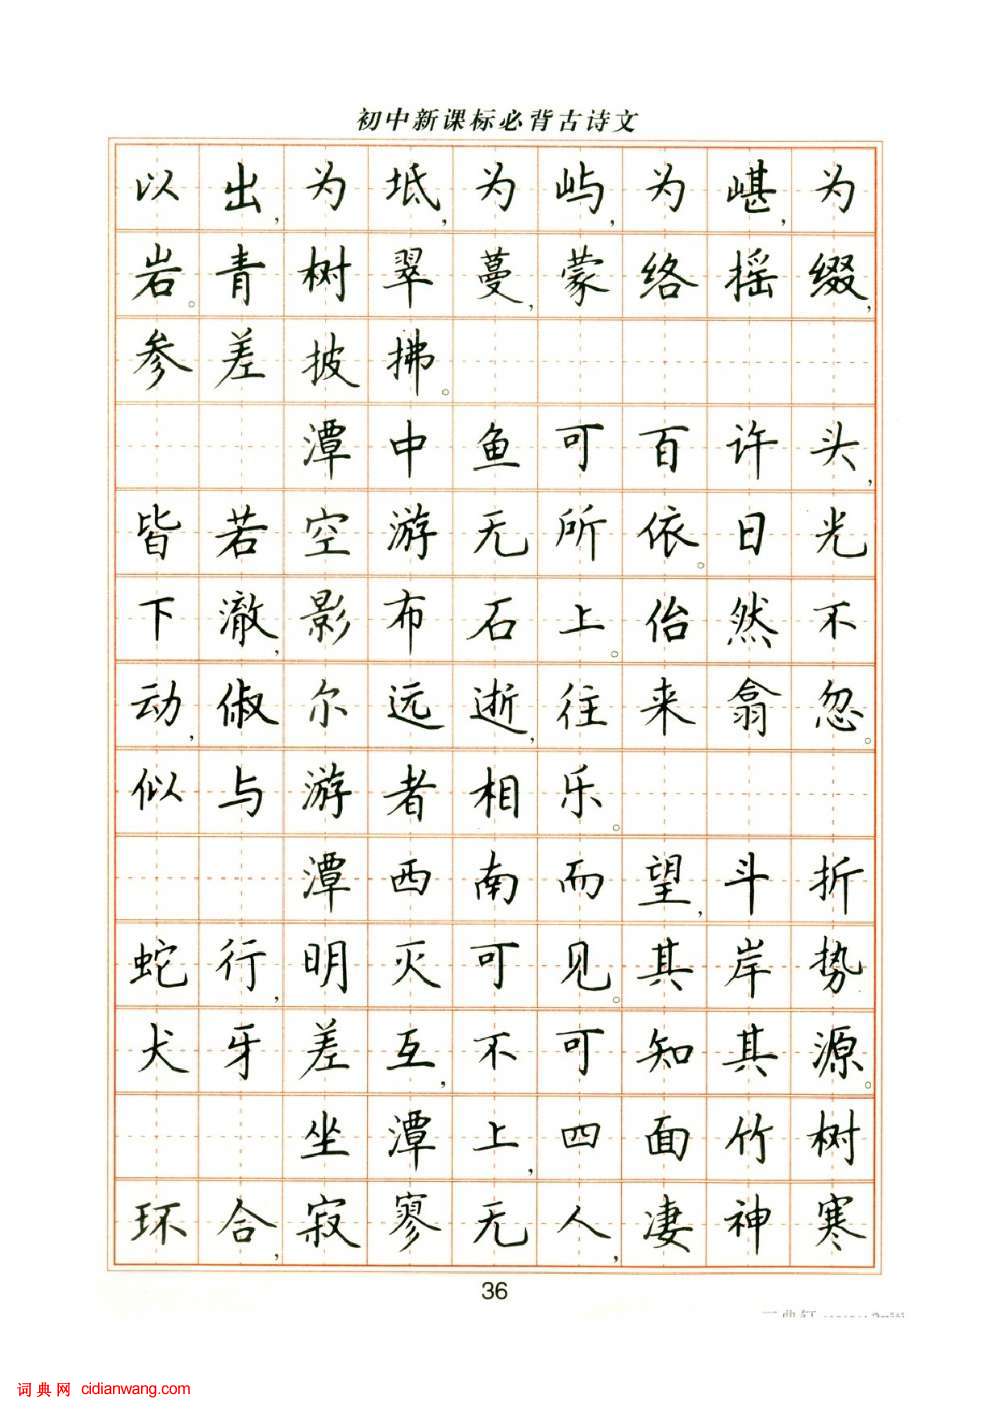 初中新课标必背古诗文
以出,为坻,为屿,为嵁,为
岩。青树翠蔓,蒙络摇缀,
参差披拂。
潭中鱼可百许头,
皆若空游无所依。日光
下澈,影布石上。佁然不
动,俶尔远逝,往来翕忽。
似与游者相乐。
潭西南而望,斗折
蛇行,明灭可见。其岸势
犬牙差互,不可知其源。
坐潭上,四面竹树
环合,寂寥无人,凄神寒
36
词典网 cidianwang.com